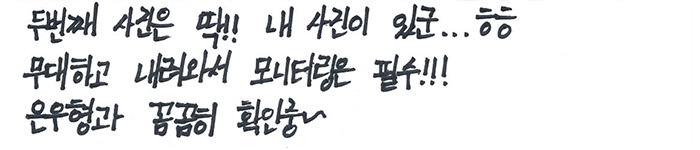 두번째 사진은 땍!! 내 사진이 있군...ㅎㅎ
무대하고 내려와서 모니터링은 필수!!!
은우형과 꼼꼼히 확인중~